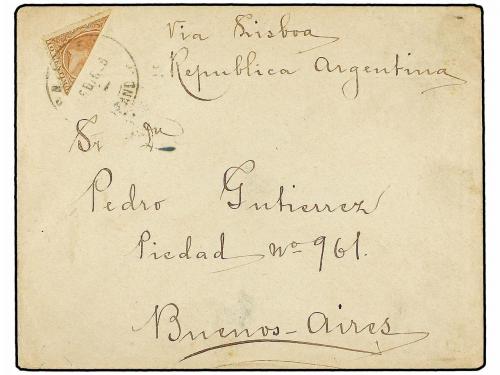 Via Lisboa
Republica Argentina
Sr Dn
Pedro Gutierrez
Piedad nº 961.
Buenos-Aires